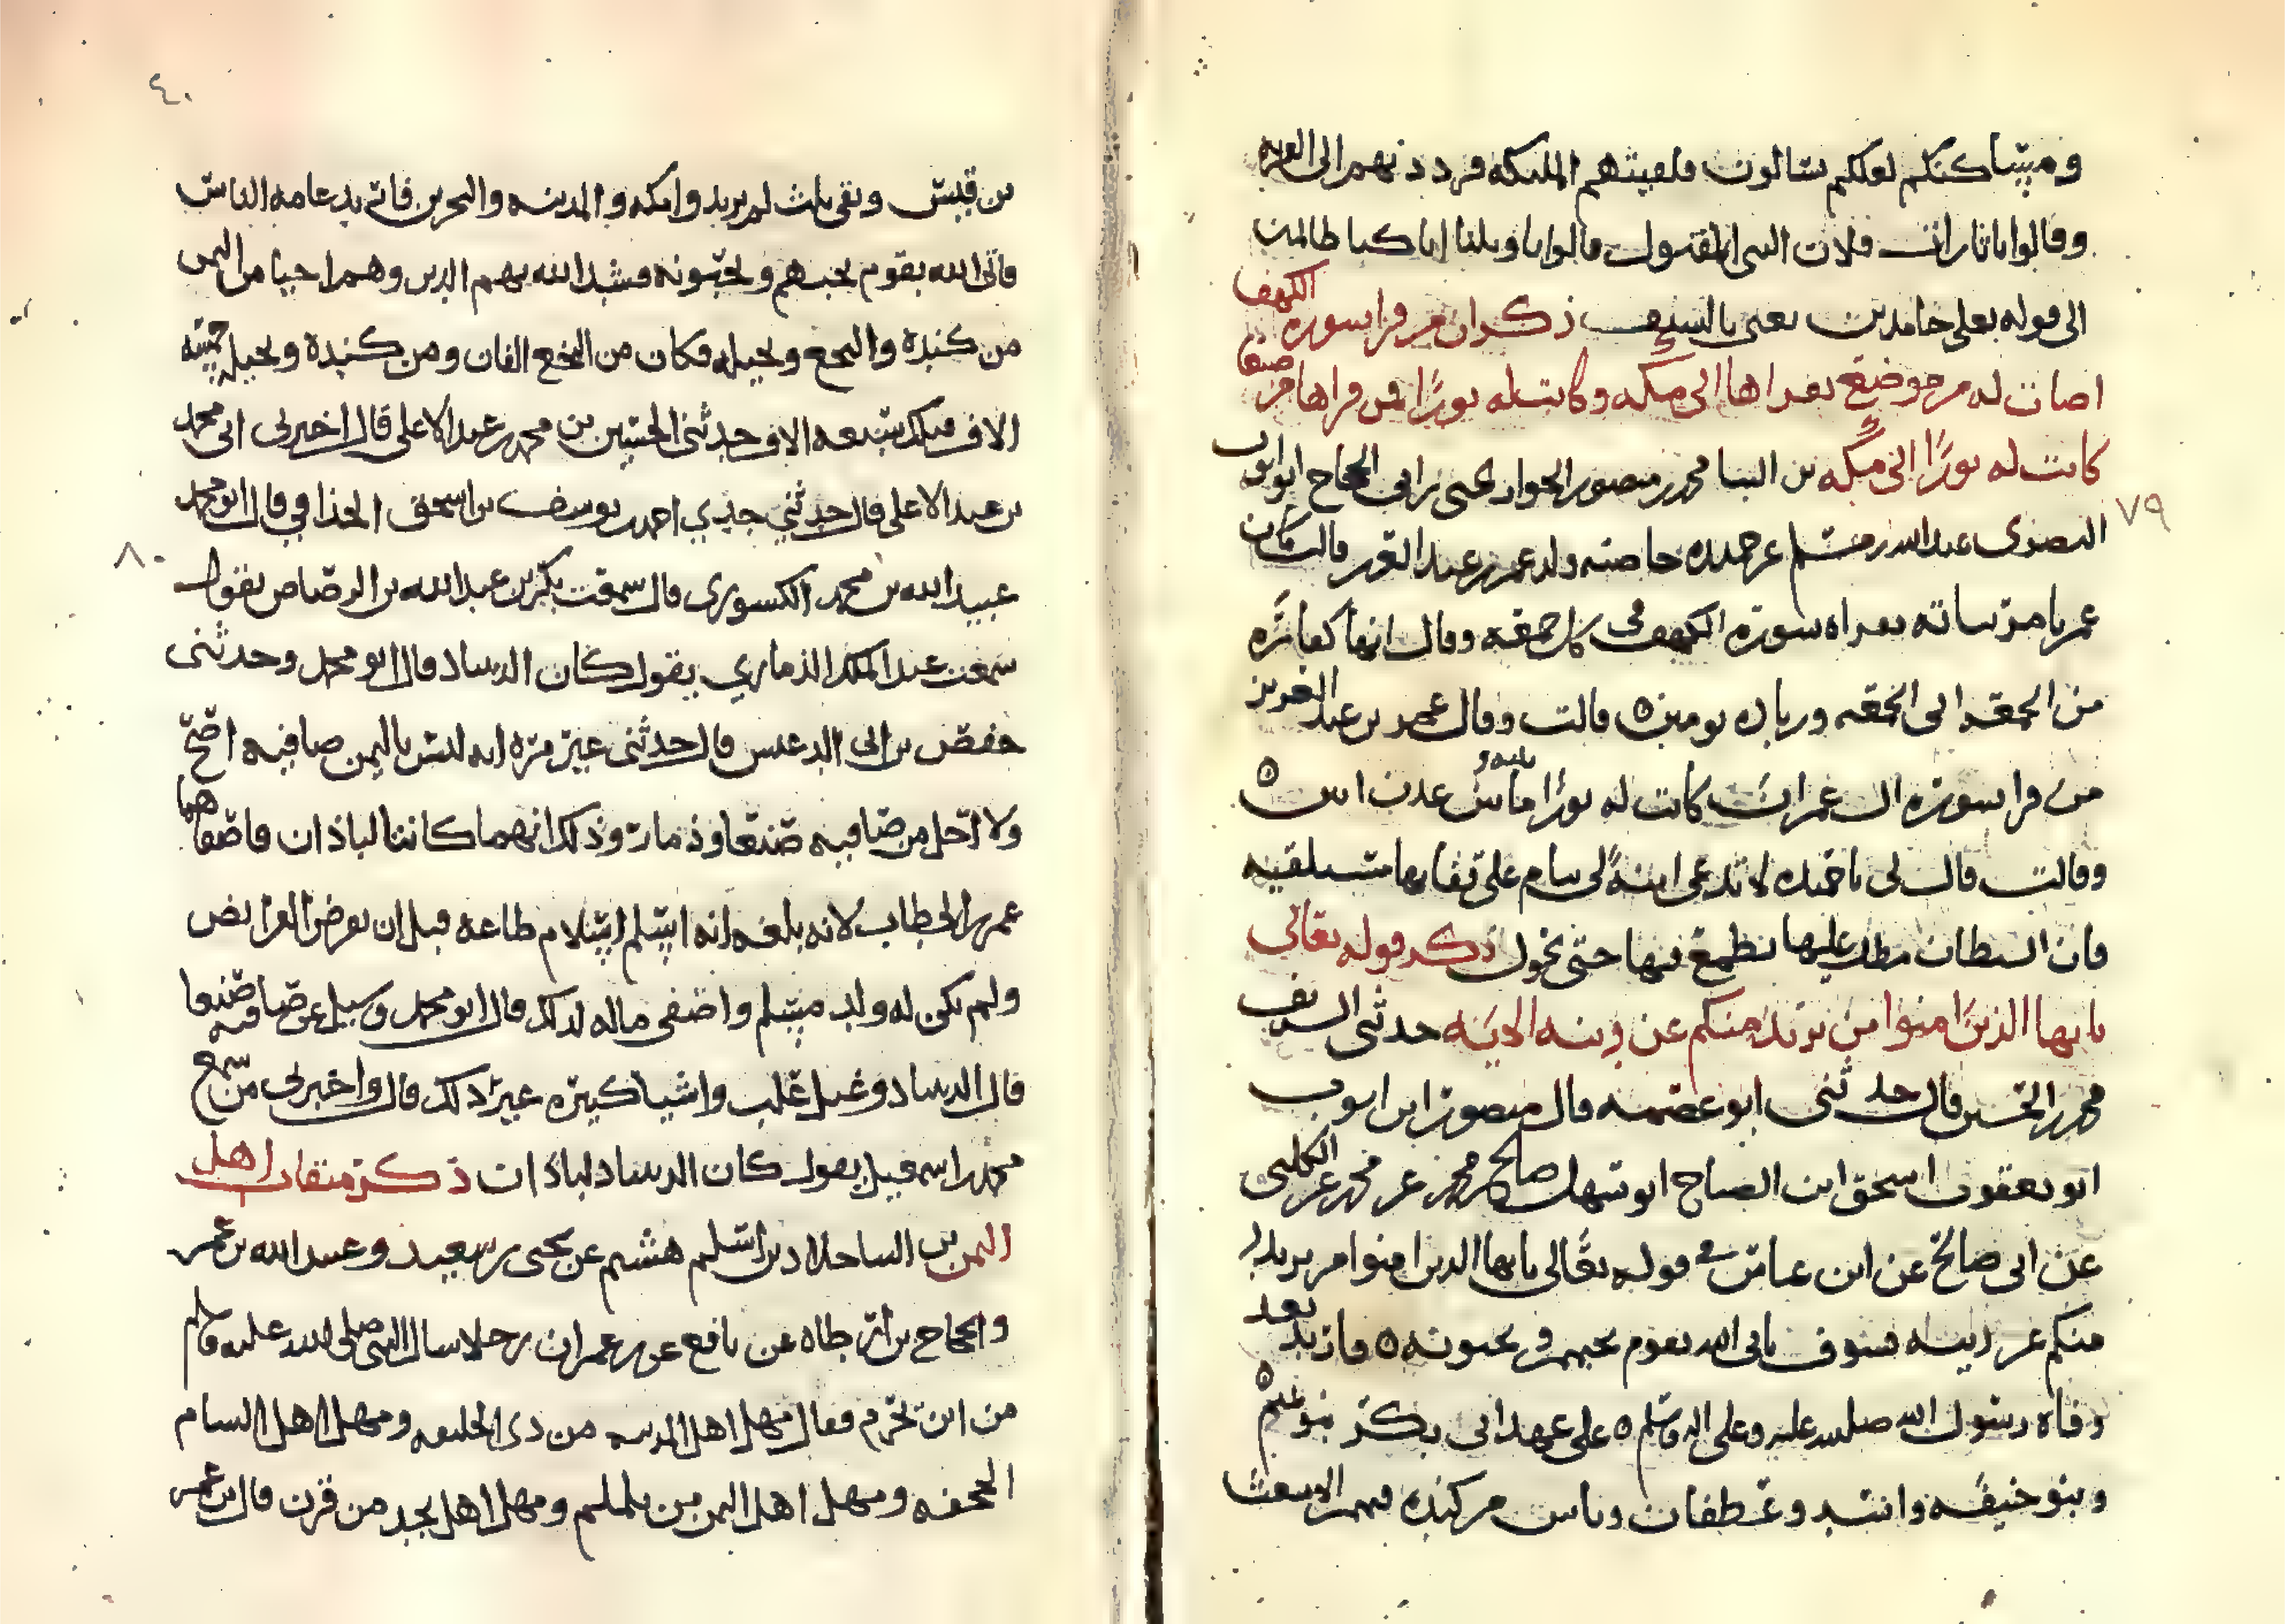 ومساكنكم لعلكم تسالون فلقيتهم الملئكة فردد نهم الى القرية
وقالوا يا ثارات فلان النبي المقتول قالوا يا ويلنا انا كنا ظالمين
الى قوله تعلى خامدين يعني بالسيف ذكر ان من قرا سورة الكهف
اضات له من موضع يقراها الى مكه وكانت له نورًا فمن قراها من صنعا
كانت له نورًا الى مكه بن البنا محمد بن منصور الجواد يحيى بن ابي الحجاج ابو ايوب
البصري عبد الله بن مسلم عن حميده حاضنه ولد عمر بن عبد العزيز قالت كان
عمر يامر نساته بقراه سورة الكهف في كل جمعه وقال انها كفارة
من الجمعه الى الجمعه وزياده يومين ه قالت وقال عمر بن عبد العزيز
من قرا سورة ال عمران كانت له نورًا ما بينه وبين عدن ابين ه
وقالت قال لي يا حميده لا تدعي ابنة لي تنام على قفاها مستلقيه
فان الشيطان مطل عليها يطمع فيها حتى تحول ذكر قوله تعالى
يايها الذين امنوا من يرتد منكم عن دينه الاية حدثني الشريف
محمد بن الحسين قال حدثني ابو عصمه قال منصور ابن ايوب
ابو يعقوب اسحق ابن الصباح ابو سهل صالح بن محمد عن محمد عن الكلبي
عن ابي صالح عن ابن عباس في قوله تعالى يايها الذين امنوا من يرتدد
منكم عن دينه فسوف ياتي الله بقوم يحبهم ويحبونه ه فارتد بعد
وفاة رسول الله صلى الله عليه وعلى اله وسلم ه على عهد ابي بكر بنو تميم ه
وبنو حنيفه واسد وغطفان وناس من كنده فيهم الاشعث
٧٩
٤٠
بن قيس وبقي ثلث لم يريدوا مكه والمدينه والبحرين فاتريد عامه الناس
فاتى الله بقوم يحبهم ويحبونه فشد الله بهم الدين وهم احيا من اليمن
من كندة والنخع وبجيله فكان من النخع الفان ومن كندة وبجيله خمسه
الاف فتلك سبعه الاف حدثني الحسين بن محمد بن عبد الاعلى قال اخبرني ابي محمد
بن عبد الاعلى قال حدثني جدي احمد بن يوسف بن اسحق الحذافي قال ابو محمد
عبيد الله بن محمد الكسوري قال سمعت بكر بن عبد الله بن الرصاص يقول
سمعت عبد الملك الذماري يقول كان الدساد قال ابو محمد وحدثني
حفص بن ابي الدعيس قال حدثني غير مرة انه ليس باليمن صافيه اصح
ولا احل من صافيه صنعا وذمار وذلك انهما كانتا لباذان فاصفاهما
عمر بن الخطاب لانه بلغه انه اسلم اسلام طاعه قبل ان تفرض الفرايض
ولم يكن له ولد مسلم واصفى ماله لذلك قال ابو محمد وسيل عن صافيه صنعا
قال الدساد وغيل غلب واشيا كثيره غير ذلك قال واخبرني من سمع
محمد بن اسمعيل يقول كان الدساد لباذان ذكر ميقات اهل
اليمن بن الساحلادي اسلم هشيم عن يحيى بن سعيد وعبد الله بن عمر
والحجاج بن ارطاه عن نافع عن بن عمر ان رجلا سال النبي صلى الله عليه وسلم
من اين نحرم فقال مهل اهل المدينه من ذي الحليفه ومهل اهل الشام
الجحفه ومهل اهل اليمن من يلملم ومهل اهل نجد من قرن قال بن عمر
٨٠